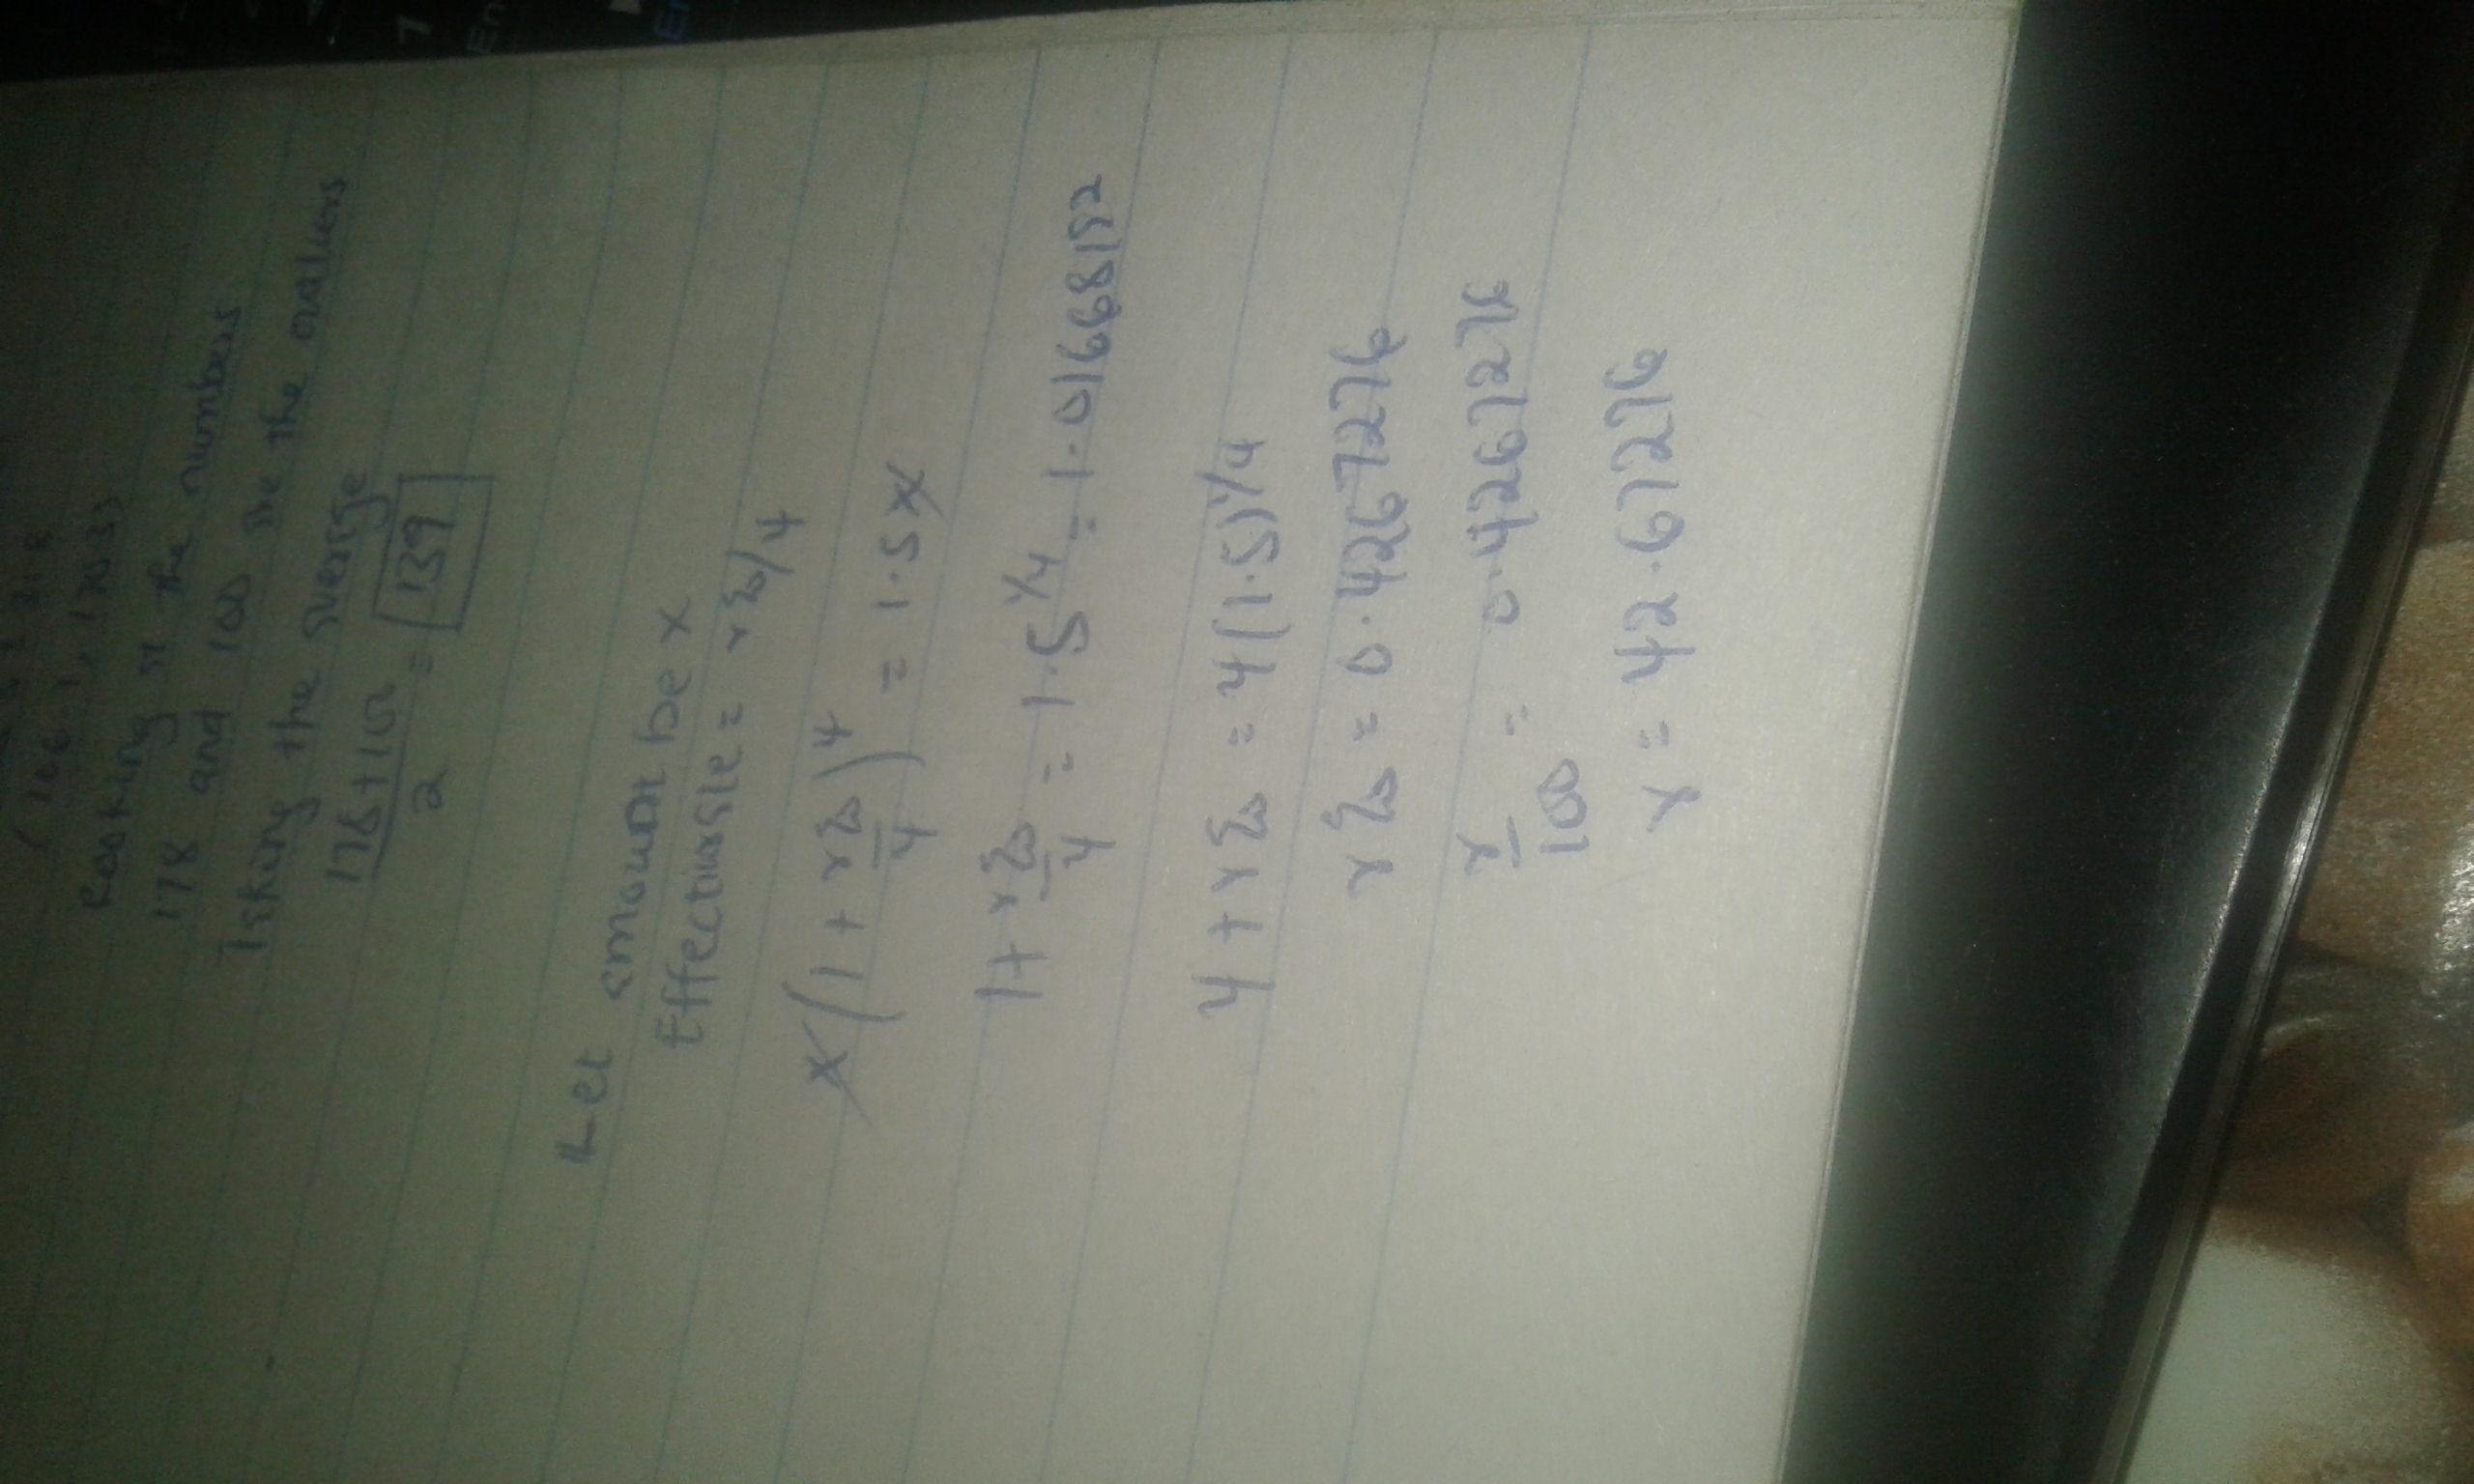 Looking at the numbers
178 and 100 are the outliers
Taking the average
178+100
2
= 139
Let amount be x
Effective rate = r%/4
x(1 + r%/4)⁴ = 1.5x
1+ r%/4 = 1.5^1/4 = 1.01668152
4 + r% = 4(1.5)^1/4
r% = 0.42672276
x/100 = 0.42672276
x = 42.67276